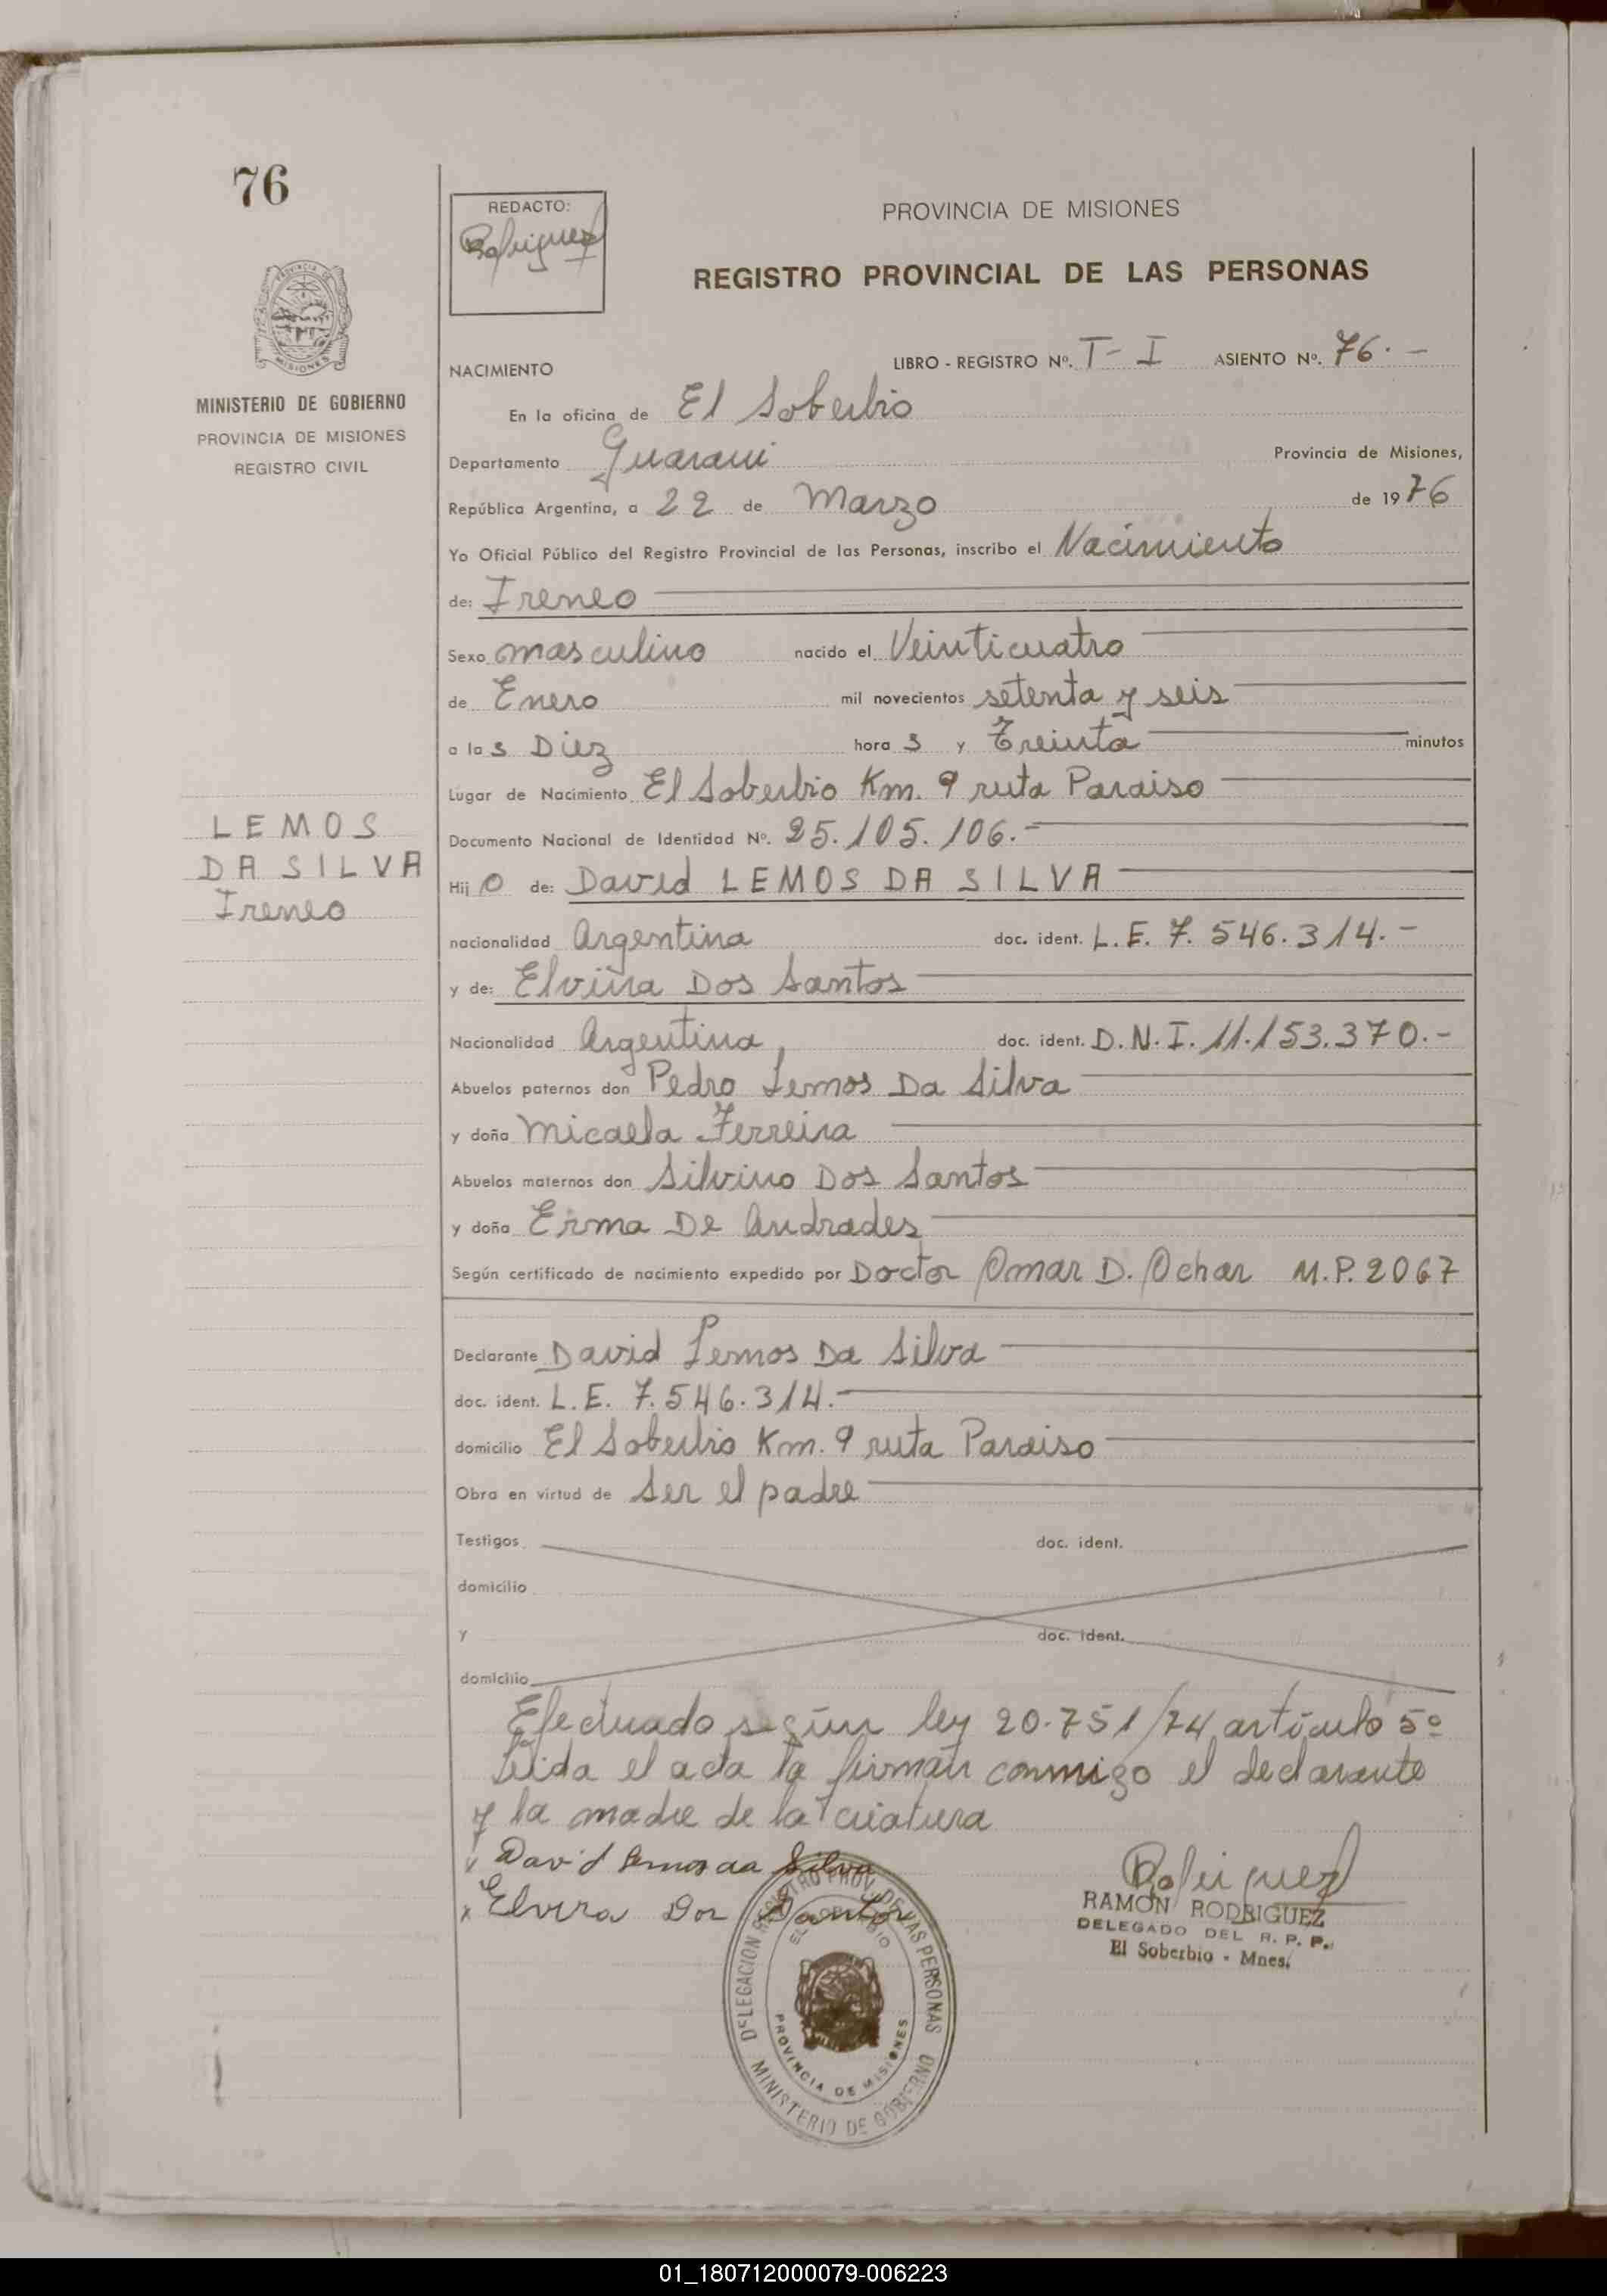 76
REDACTO:
Rodriguez
PROVINCIA DE MISIONES
REGISTRO PROVINCIAL DE LAS PERSONAS
MISIONES
MINISTERIO DE GOBIERNO
PROVINCIA DE MISIONES
REGISTRO CIVIL
NACIMIENTO
LIBRO - REGISTRO Nº. T - I ASIENTO Nº. 76. -
En la oficina de El Soberbio
Departamento Guarani Provincia de Misiones,
República Argentina, a 22 de Marzo de 1976
Yo Oficial Público del Registro Provincial de las Personas, inscribo el Nacimiento
de: Ireneo
Sexo masculino nacido el Veinticuatro
de Enero mil novecientos setenta y seis
a las Diez horas y Treinta minutos
Lugar de Nacimiento El Soberbio Km. 9 ruta Paraiso
Documento Nacional de Identidad Nº. 25.105.106.-
LEMOS
DA SILVA
Ireneo
Hijo de: David LEMOS DA SILVA
nacionalidad Argentina doc. ident. L.E. 7.546.314.-
y de: Elvira Dos Santos
Nacionalidad Argentina, doc. ident. D.N.I. 11.153.370.-
Abuelos paternos don Pedro Lemos Da Silva
y doña Micaela Ferreira
Abuelos maternos don Silvino Dos Santos
y doña Erma De Andrades
Según certificado de nacimiento expedido por Doctor Omar D. Ochar M.P. 2067
Declarante David Lemos Da Silva
doc. ident. L.E. 7.546.314.-
domicilio El Soberbio Km. 9 ruta Paraiso
Obra en virtud de Ser el padre
Testigos doc. ident.
domicilio
y doc. ident.
domicilio
Efectuado según ley 20.751/74 artículo 5º
Leida el acta la firman conmigo el declarante
y la madre de la criatura
x David Lemos da Silva
x Elvira Dos Santos
Rodriguez
RAMON RODRIGUEZ
DELEGADO DEL R. P. P.
El Soberbio - Mnes.
DELEGACION REGISTRO PROV. DE LAS PERSONAS
EL SOBERBIO
PROVINCIA DE MISIONES
MINISTERIO DE GOBIERNO
01_180712000079-006223